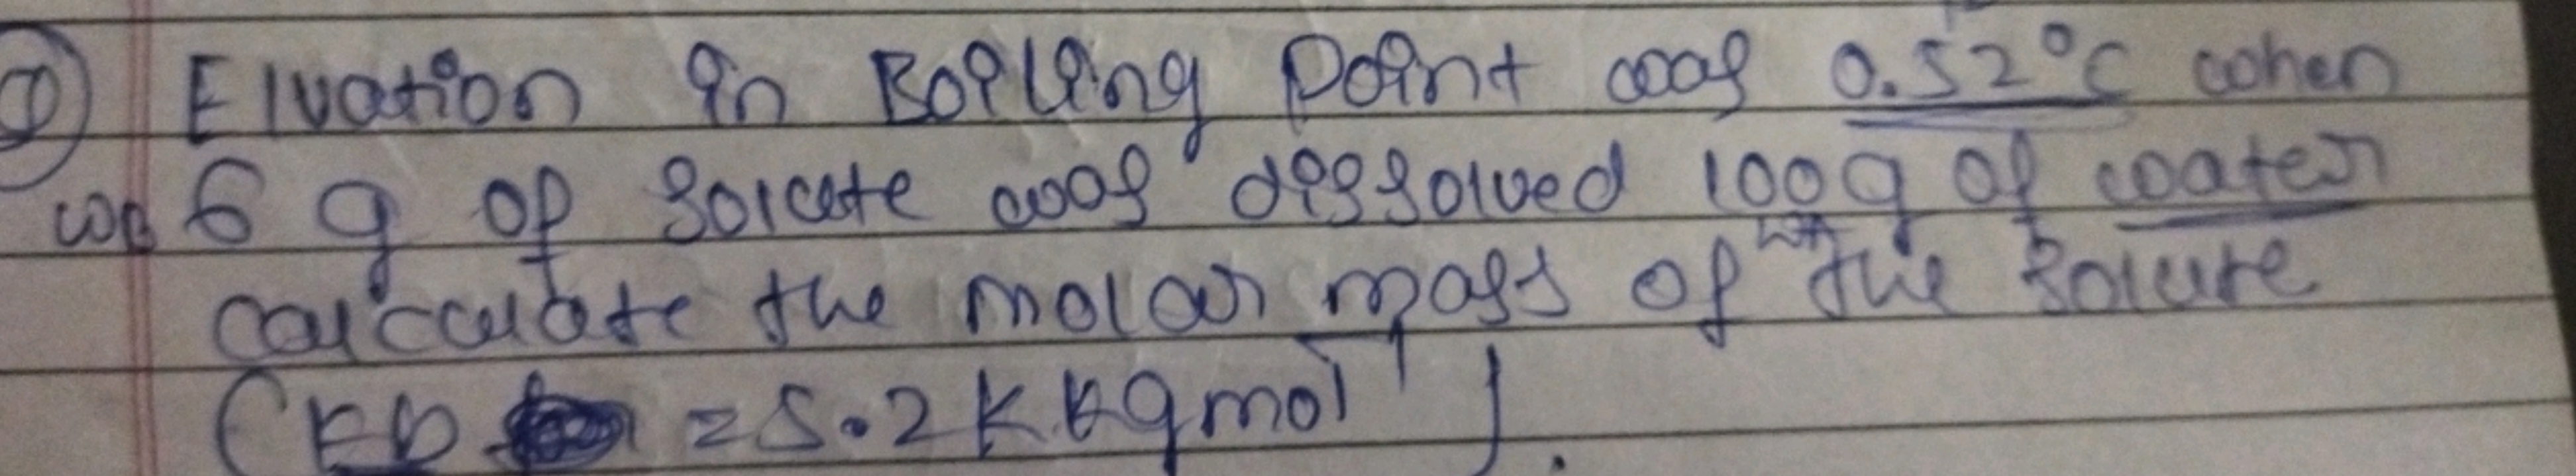 ① Elvation in Boiling Point was 0.52°C when
WB 6 g of Solute was dissolved 100g of water
WA
calculate the molar mass of the solute
(Kb = 5.2 K Kg mol⁻¹).